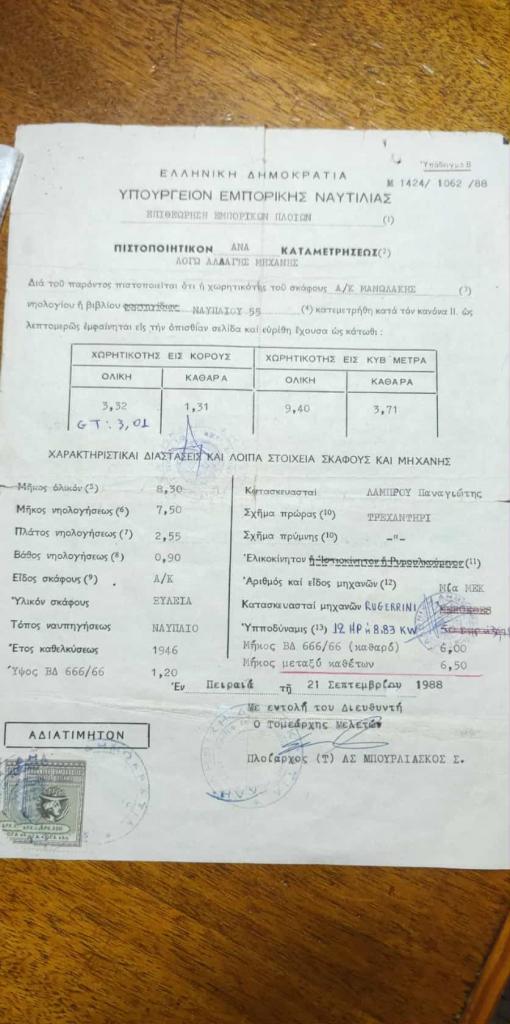 Ὑπόδειγμα Β
ΕΛΛΗΝΙΚΗ ΔΗΜΟΚΡΑΤΙΑ
Μ 1424/ 1062 /88
ΥΠΟΥΡΓΕΙΟΝ ΕΜΠΟΡΙΚΗΣ ΝΑΥΤΙΛΙΑΣ
ΕΠΙΘΕΩΡΗΣΗ ΕΜΠΟΡΙΚΩΝ ΠΛΟΙΩΝ (1)
ΠΙΣΤΟΠΟΙΗΤΙΚΟΝ ΑΝΑ ΚΑΤΑΜΕΤΡΗΣΕΩΣ(2)
ΛΟΓΩ ΑΛΛΑΓΗΣ ΜΗΧΑΝΗΣ
Διά τοῦ παρόντος πιστοποιεῖται ὅτι ἡ χωρητικότης τοῦ σκάφους Α/Κ ΜΑΝΩΛΑΚΗΣ (3)
νηολογίου ἤ βιβλίου ΝΑΥΠΛΙΟΥ 55 (4) κατεμετρήθη κατά τόν κανόνα ΙΙ. ὡς
λεπτομερῶς ἐμφαίνεται εἰς τήν ὄπισθίαν σελίδα καί εὑρέθη ἔχουσα ὡς κάτωθι :
ΧΩΡΗΤΙΚΟΤΗΣ ΕΙΣ ΚΟΡΟΥΣ ΧΩΡΗΤΙΚΟΤΗΣ ΕΙΣ ΚΥΒ ΜΕΤΡΑ
ΟΛΙΚΗ ΚΑΘΑΡΑ ΟΛΙΚΗ ΚΑΘΑΡΑ
3,32 1,31 9,40 3,71
GT: 3,01
ΧΑΡΑΚΤΗΡΙΣΤΙΚΑΙ ΔΙΑΣΤΑΣΕΙΣ ΚΑΙ ΛΟΙΠΑ ΣΤΟΙΧΕΙΑ ΣΚΑΦΟΥΣ ΚΑΙ ΜΗΧΑΝΗΣ
Μῆκος ὁλικόν (5) 8,30
Μῆκος νηολογήσεως (6) 7,50
Πλάτος νηολογήσεως (7) 2,55
Βάθος νηολογήσεως (8) 0,90
Εἶδος σκάφους (9) Α/Κ
Ὑλικόν σκάφους ΞΥΛΕΙΑ
Τόπος ναυπηγήσεως ΝΑΥΠΛΙΟ
Ἔτος καθελκύσεως 1946
Ὕψος ΒΔ 666/66 1,20
Κατασκευασταί ΛΑΜΠΡΟΥ Παναγιώτης
Σχῆμα πρώρας (10) ΤΡΕΧΑΝΤΗΡΙ
Σχῆμα πρύμνης (10) -"-
Ἑλικοκίνητον ἤ Ἱστιοκίνητον ἤ Ρυμουλκούμενον (11)
Ἀριθμός καί εἶδος μηχανῶν (12) Μία ΜΕΚ
Κατασκευασταί μηχανῶν RUGERRINI
Ὑπποδύναμις (13) 12 HP ἤ 8.83 KW
Μῆκος ΒΔ 666/66 (καθαρό) 6,00
Μῆκος μεταξύ καθέτων 6,50
Ἐν Πειραιᾶ τῇ 21 Σεπτεμβρίου 1988
Με εντολή του Διευθυντή
Ο Τομεάρχης Μελετών
Πλοίαρχος (Τ) ΛΣ ΜΠΟΥΡΛΙΑΣΚΟΣ Σ.
ΑΔΙΑΤΙΜΗΤΟΝ